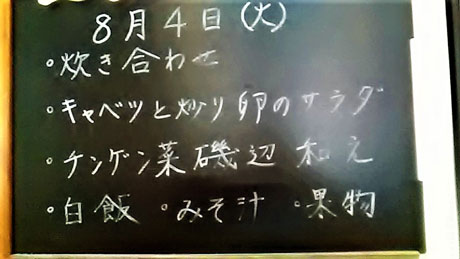 8月4日(火)
・炊き合わせ
・キャベツと炒り卵のサラダ
・チンゲン菜磯辺和え
・白飯 ・みそ汁 ・果物